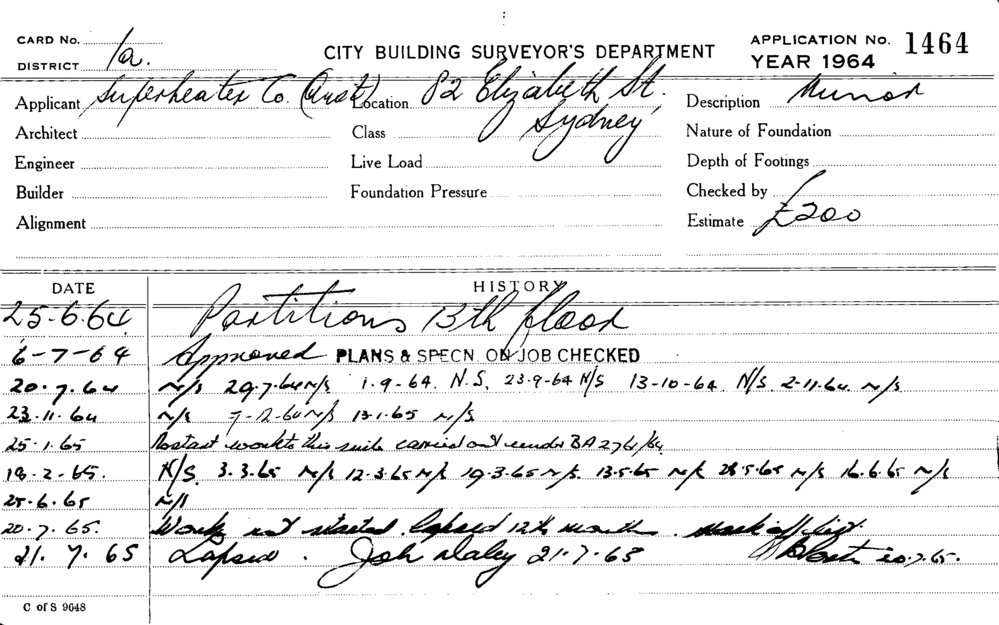 CARD No. 1a.
DISTRICT
CITY BUILDING SURVEYOR'S DEPARTMENT
APPLICATION No. 1464
YEAR 1964
Applicant Superheater Co. (Aust) Location 82 Elizabeth St. Sydney
Description Minor
Architect
Class
Nature of Foundation
Engineer
Live Load
Depth of Footings
Builder
Foundation Pressure
Checked by
Alignment
Estimate £200
DATE HISTORY
25-6-64 Partitions 13th floor
6-7-64 Approved PLANS & SPECN. ON JOB CHECKED
20.7.64 N/S 29.7.64 N/S 1.9-64. N.S. 23.9-64 N/S 13-10-64 N/S. 2-11.64 N/S.
23.11.64 N/S 7-12-64 N/S 13.1.65 N/S.
25.1.65 work to this suite carried out under BA 2761/64
18.2.65. N/S. 3.3.65 N/S 12-3.65 N/S 19.3.65 N/S. 13.5.65 N/S 28.5.65 N/S 16.6.65 N/S
25.6.65 N/S
20.7.65. Work not started. lapsed 12th month. mark off list.
21.7.65 Lapsed. Joh Daley 21.7.65 20.7.65.
C of S 9648